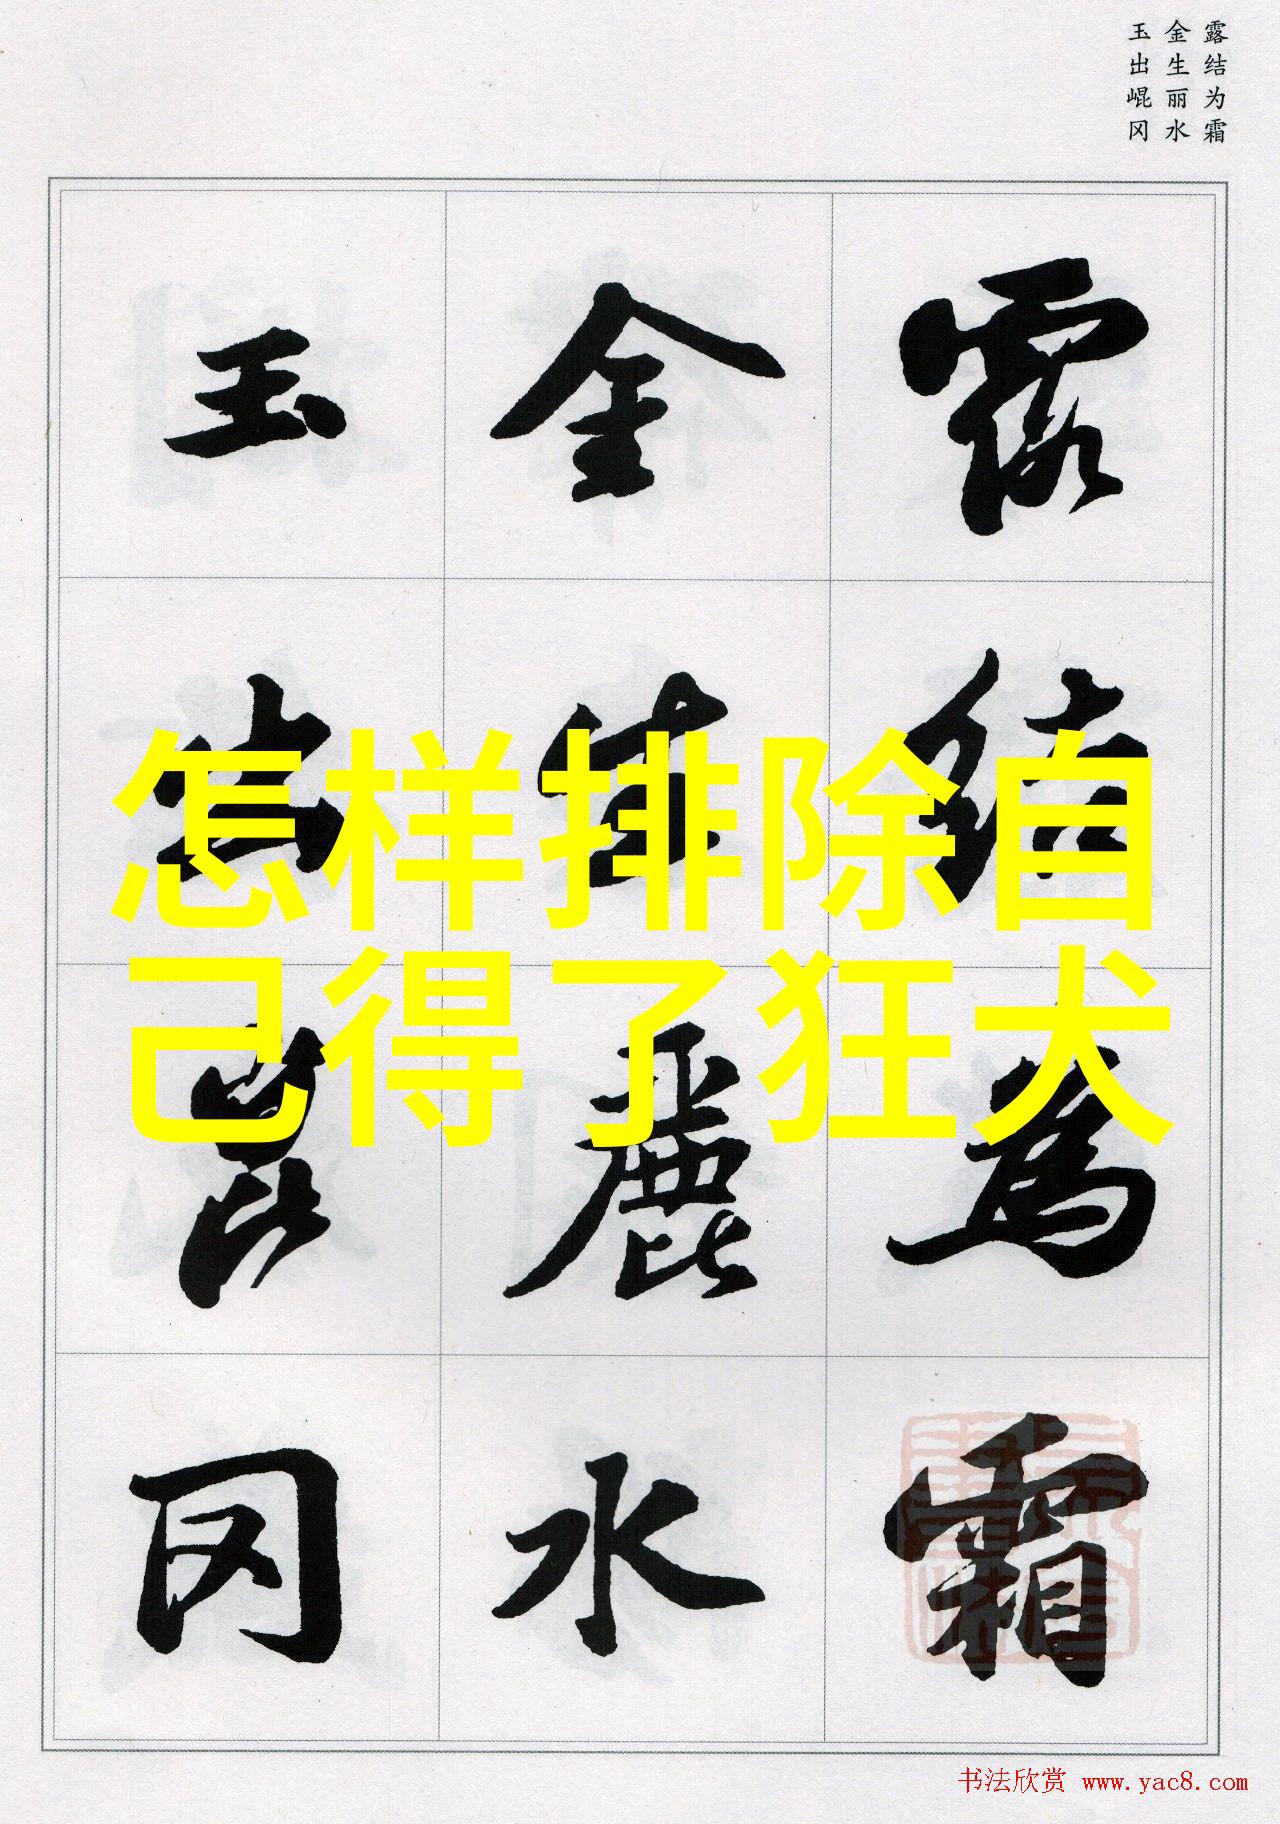 露结为霜
金生丽水
玉出崐冈
露結為霜
金生麗水
玉出崑冈
怎样排除自
己得了狂犬
书法欣赏 www.yac8.com